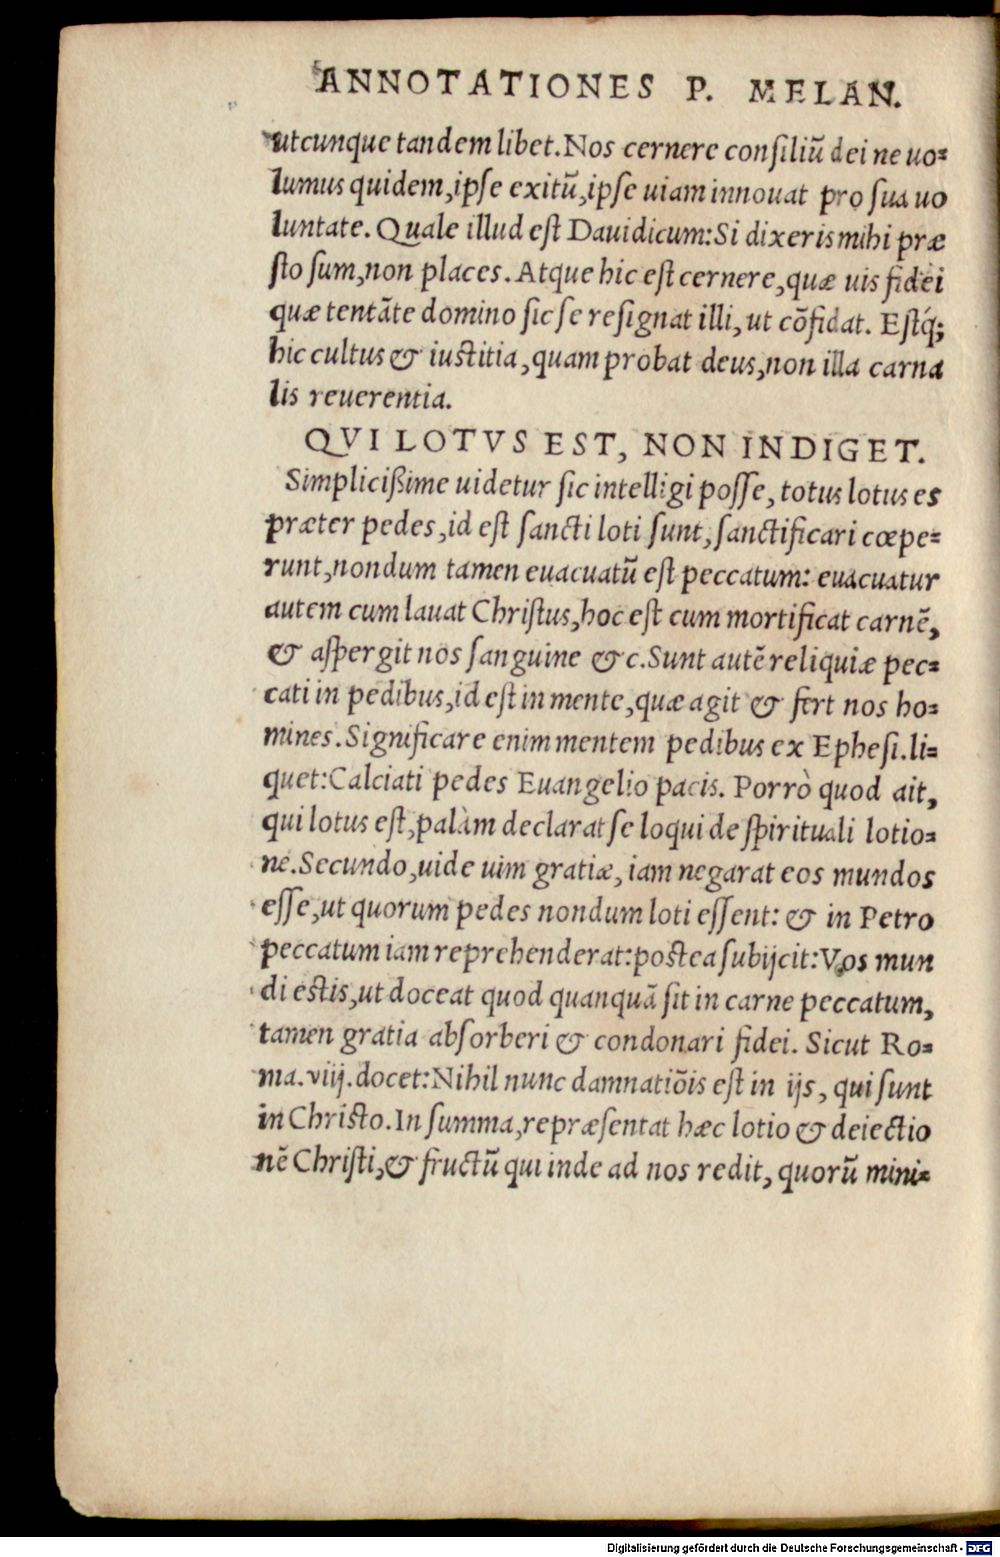 ANNOTATIONES P. MELAN.
utcunque tandem libet. Nos cernere consiliũ dei ne uo=
lumus quidem, ipse exitũ, ipse uiam innouat pro sua uo
luntate. Quale illud est Dauidicum: Si dixeris mihi præ
sto sum, non places. Atque hic est cernere, quæ uis fidei
quæ tentãte domino sic se resignat illi, ut cõfidat. Estq́;
hic cultus & iustitia, quam probat deus, non illa carna
lis reuerentia.
QVI LOTVS EST, NON INDIGET.
Simplicißime uidetur sic intelligi posse, totus lotus es
præter pedes, id est sancti loti sunt, sanctificari cœpe=
runt, nondum tamen euacuatũ est peccatum: euacuatur
autem cum lauat Christus, hoc est cum mortificat carnẽ,
& aspergit nos sanguine &c. Sunt autẽ reliquiæ pec=
cati in pedibus, id est in mente, quæ agit & fert nos ho=
mines. Significare enim mentem pedibus ex Ephesi. li=
quet: Calciati pedes Euangelio pacis. Porrò quod ait,
qui lotus est, palàm declarat se loqui de spirituali lotio=
ne. Secundo, uide uim gratiæ, iam negarat eos mundos
esse, ut quorum pedes nondum loti essent: & in Petro
peccatum iam reprehenderat: postea subijcit: Vos mun
di estis, ut doceat quod quanquã sit in carne peccatum,
tamen gratia absorberi & condonari fidei. Sicut Ro=
ma. viij. docet: Nihil nunc damnatiõis est in ijs, qui sunt
in Christo. In summa, repræsentat hæc lotio & deiectio
nẽ Christi, & fructũ qui inde ad nos redit, quorũ mini=
Digitalisierung gefördert durch die Deutsche Forschungsgemeinschaft - DFG